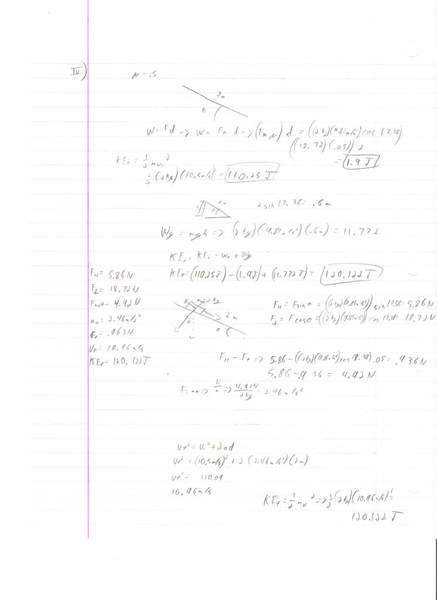 IV.)
μ = .5
2m
θ
W = Fd → W = Fn d → (Fn μ) d = ((2kg)(9.81m/s²)cos 17.38)
((18.72)(.05)) 2
= 1.9 J
KE1 = 1/2 mv²
1/2 (2kg)(10.5m/s)² = 110.25 J
2 sin 17.38 = .6m
Wg = mgh ⇒ (2kg)(9.81m/s²)(.6m) = 11.772
KEf = KE1 - Wf + Wg
KEf = (110.25J) - (1.9J) + (11.772J) = 120.122 J
F11 = 5.86N
F⊥ = 18.72N
Fnet = 4.92N
a = 2.46m/s²
.963N
Vf = 10.96m/s
KEf = 120.122J
F11 = F sin θ = (2kg)(9.81m/s²) sin 17.38 = 5.86
F⊥ = F cos θ = (2kg)(9.81m/s²) cos 17.38 = 18.72N
F11 - Ff ⇒ 5.86 - ((2kg)(9.81m/s²) cos(17.38)) .05 = .936N
5.86 - .936 = 4.92N
⇒ 4.92N/2kg = 2.46m/s²
Vf² = V² + 2ad
Vf² = (10.5m/s)² + 2(2.46m/s²)(2m)
Vf² = 110.09
10.96m/s
KEf = 1/2 mv² ⇒ 1/2 (2kg)(10.96m/s)² =
120.122 J